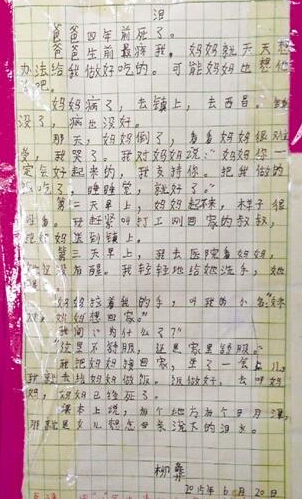 泪
爸爸四年前死了。
爸爸生前最疼我，妈妈就天天想
办法给我做好吃的。可能妈妈也想他
了吧。
妈妈病了，去镇上，去西昌。
没了，病也没好。
那天，妈妈倒了，看着妈妈很难
受，我哭了。我对妈妈说："妈妈你一
定会好起来的，我支持你。把我做的
饭吃了，睡睡觉，就好了。"
第二天早上，妈妈起不来，样子很
难看。我赶紧叫打工刚回家的叔叔，
把妈妈送到镇上。
第三天早上，我去医院看妈妈，
她没有醒。我轻轻地给她洗手，她
妈妈拉着我的手，叫我的小名：
妈妈想回家。"
我问："为什么了？"
"这里不舒服，还是家里舒服。"
我把妈妈接回家，坐了一会儿，
我就去给妈妈做饭。饭做好，去叫妈
妈，妈妈已经死了。
课本上说，有个地方有个日月潭，
那就是女儿想念母亲流下的泪水。
柳彝
2015年6月20日